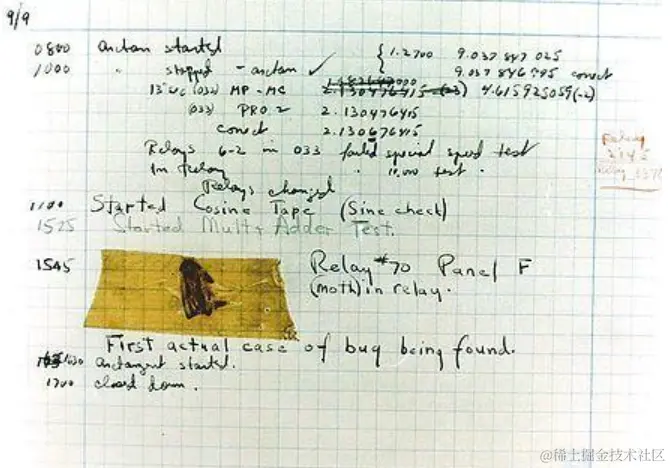 9/9
0800 antan started
1000 " stopped - antan ✓ { 1.2700 9.037 847 025
9.037 846 795 conect
13"uc (032) MP - MC 2.130476415 (-3) 4.615925059 (-2)
(033) PRO 2 2.130476415
conect 2.130676415
Relays 6-2 in 033 failed special speed test
In Relay " 10,000 test .
Relays changed
1100 Started Cosine Tape (Sine check)
1525 Started Mult + Adder Test.
1545 Relay #70 Panel F
(moth) in relay.
First actual case of bug being found.
1630 antangent started.
1700 closed down .
Relay
@稀土掘金技术社区